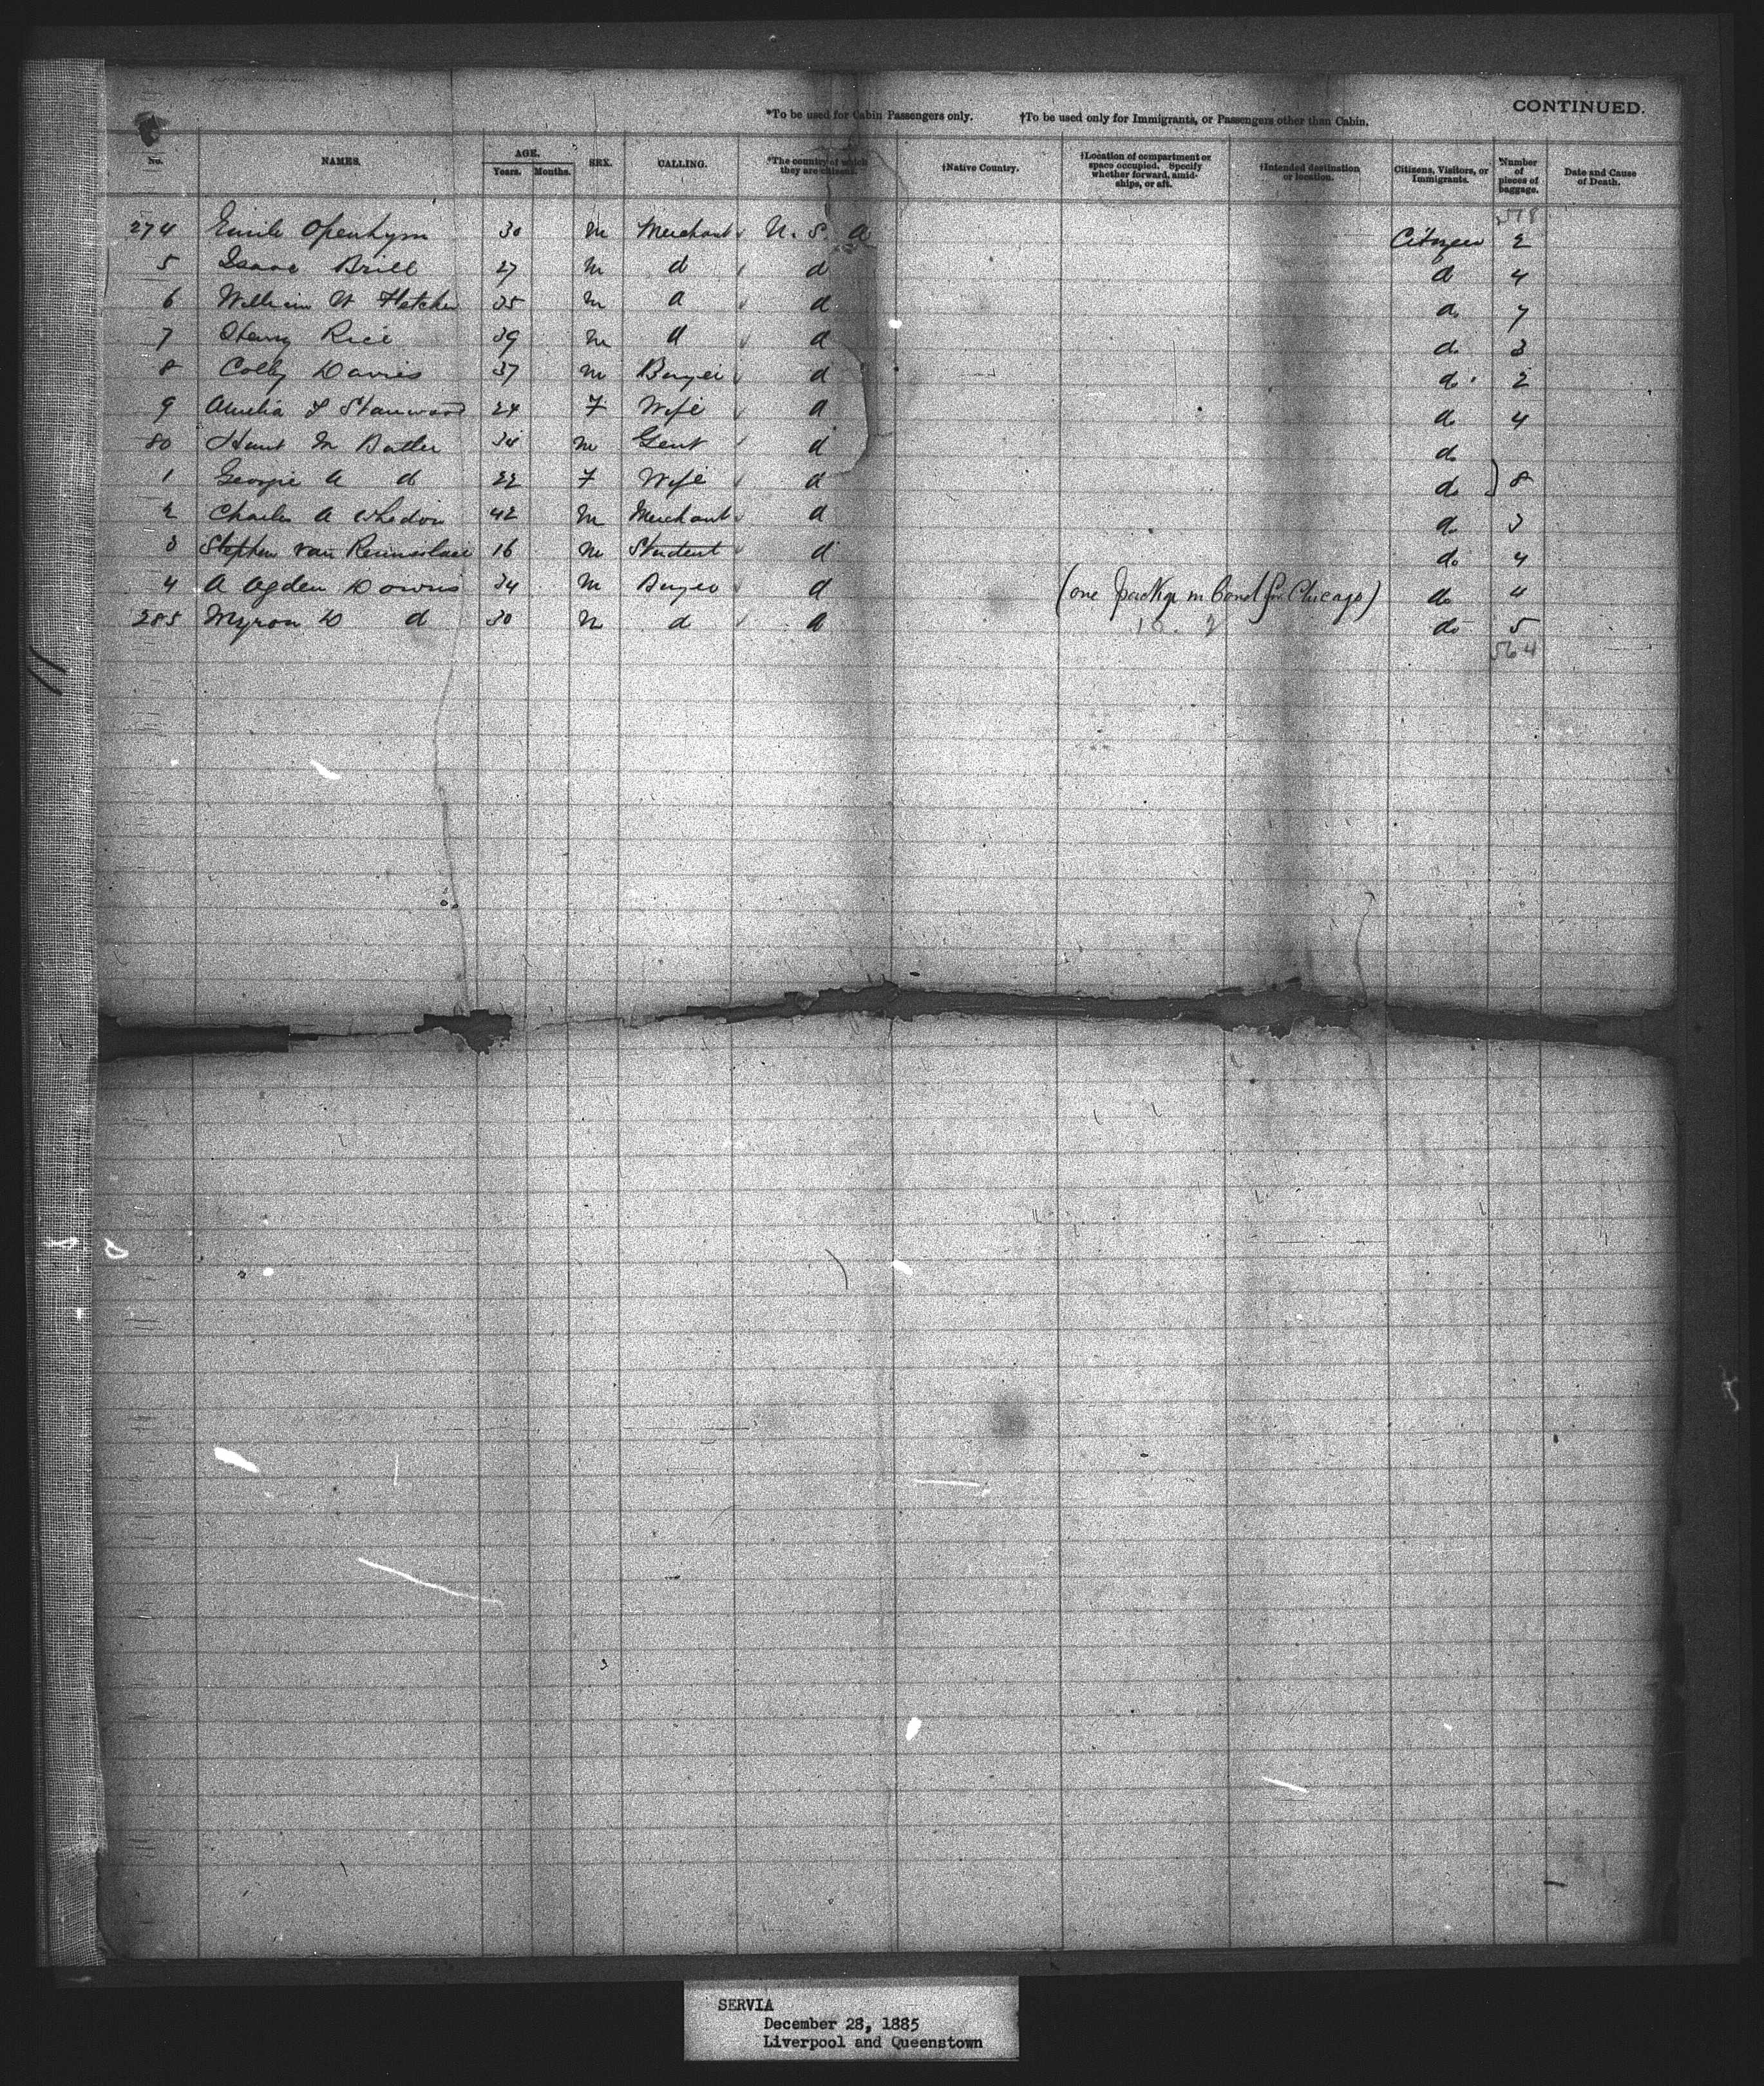 CONTINUED.
*To be used for Cabin Passengers only. †To be used only for Immigrants, or Passengers other than Cabin.
No. NAMES. AGE. Years. Months. SEX. CALLING. *The country of which they are citizens. †Native Country. †Location of compartment or space occupied. Specify whether forward, amidships, or aft. †Intended destination or location. Citizens, Visitors, or Immigrants. Number of pieces of baggage. Date and Cause of Death.
518
274 Emile Openhym 30 m Merchant U. S. A Citizen 2
5 Isaac Brill 27 m d d d 4
6 William H Fletcher 35 m d d do 7
7 Henry Rice 39 m d d do 3
8 Colby Davies 37 m Buyer d do 2
9 Amelia F Stanwood 24 F Wife d do 4
80 Hunt M Butler 34 m Gent d do
1 Georgie A d 22 F Wife d do } 8
2 Charles A Whedon 42 m Merchant d do 3
3 Stephen van Rennselaer 16 m Student d do 4
4 A Ogden Downs 34 m Buyer d (one package in Bond for Chicago) do 4
285 Myron D d 30 m d d do 5
564
11
SERVIA
December 28, 1885
Liverpool and Queenstown